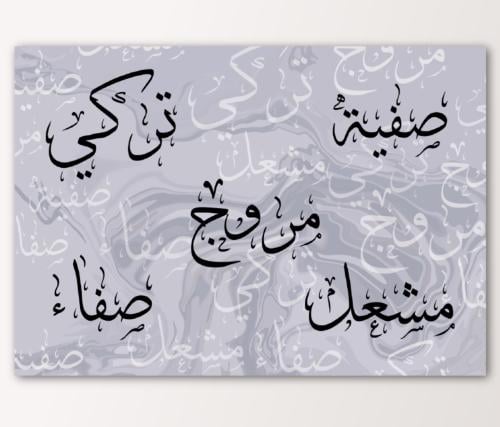 صفية تركي
مروج
مشعل صفاء